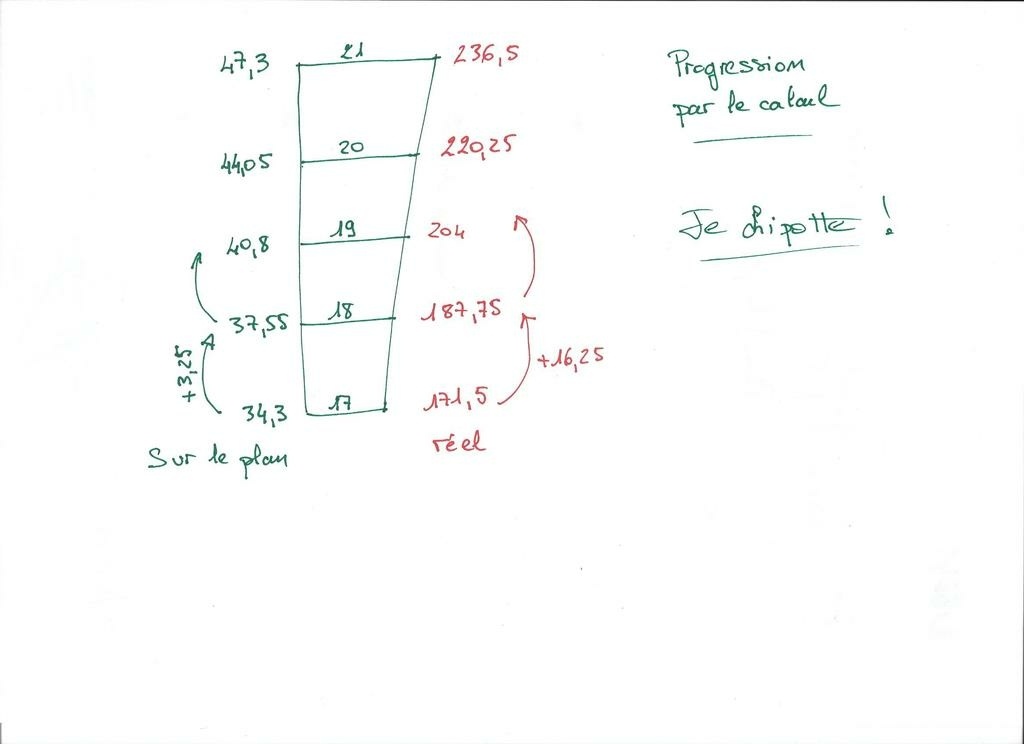 47,3 21 236,5
Progression
par le calcul
44,05 20 220,25
40,8 19 204
Je chipotte !
37,55 18 187,75
+3,25
+16,25
34,3 17 171,5
Sur le plan
réel